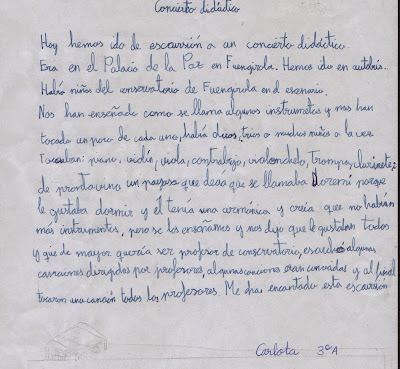 Concierto didáctico
Hoy hemos ido de escursión a un concierto didáctico.
Era en el Palacio de la Paz en Fuengirola. Hemos ido en autobús.
Había niños del conservatorio de Fuengirola en el escenario.
Nos han enseñado como se llama algunos instrumetos y nos han
tocado un poco de cada uno, había duos, trios o muchos niños a la vez
Tocaban: piano, violín, viola, contrabajo, violonchelo, Trompa, clarinete;
de pronto vino un payaso que decía que se llamaba Doremi porque
le gustaba dormir y él tenía una armónica y creía que no habían
más instrumentos, pero se los enseñamos y nos dijo que le gustaban todos
y que de mayor quería ser profesor de conservatorio, escuché algunas
canciones dirigidas por profesores, algunas canciones eran conocidas y al final
tocaron una canción todos los profesores. Me ha encantado esta escursión
Carlota 3ºA